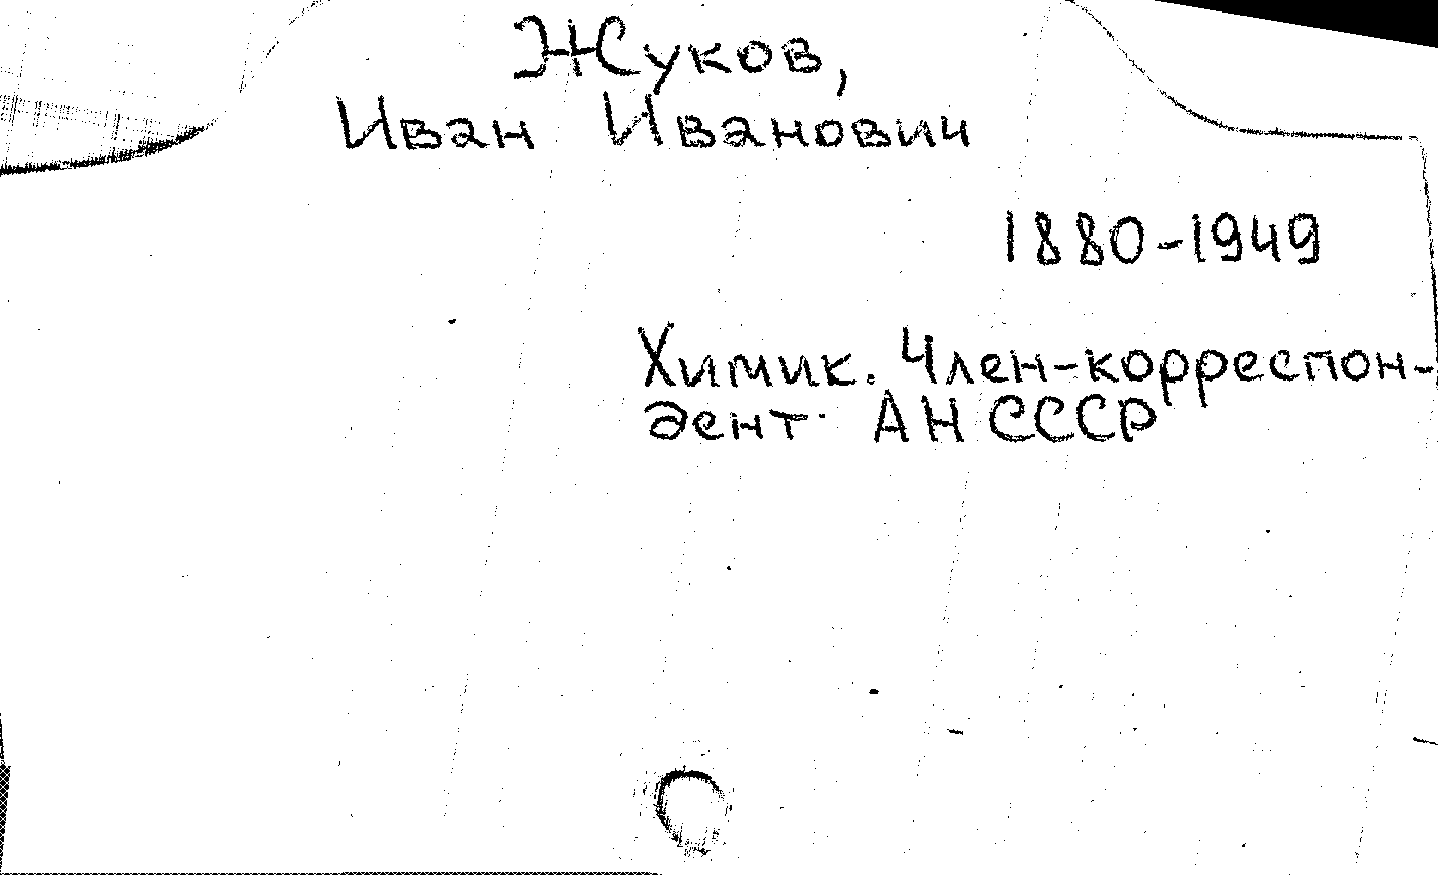 Жуков,
Иван Иванович
1880-1949
Химик. Член-корреспон-
дент АН СССР